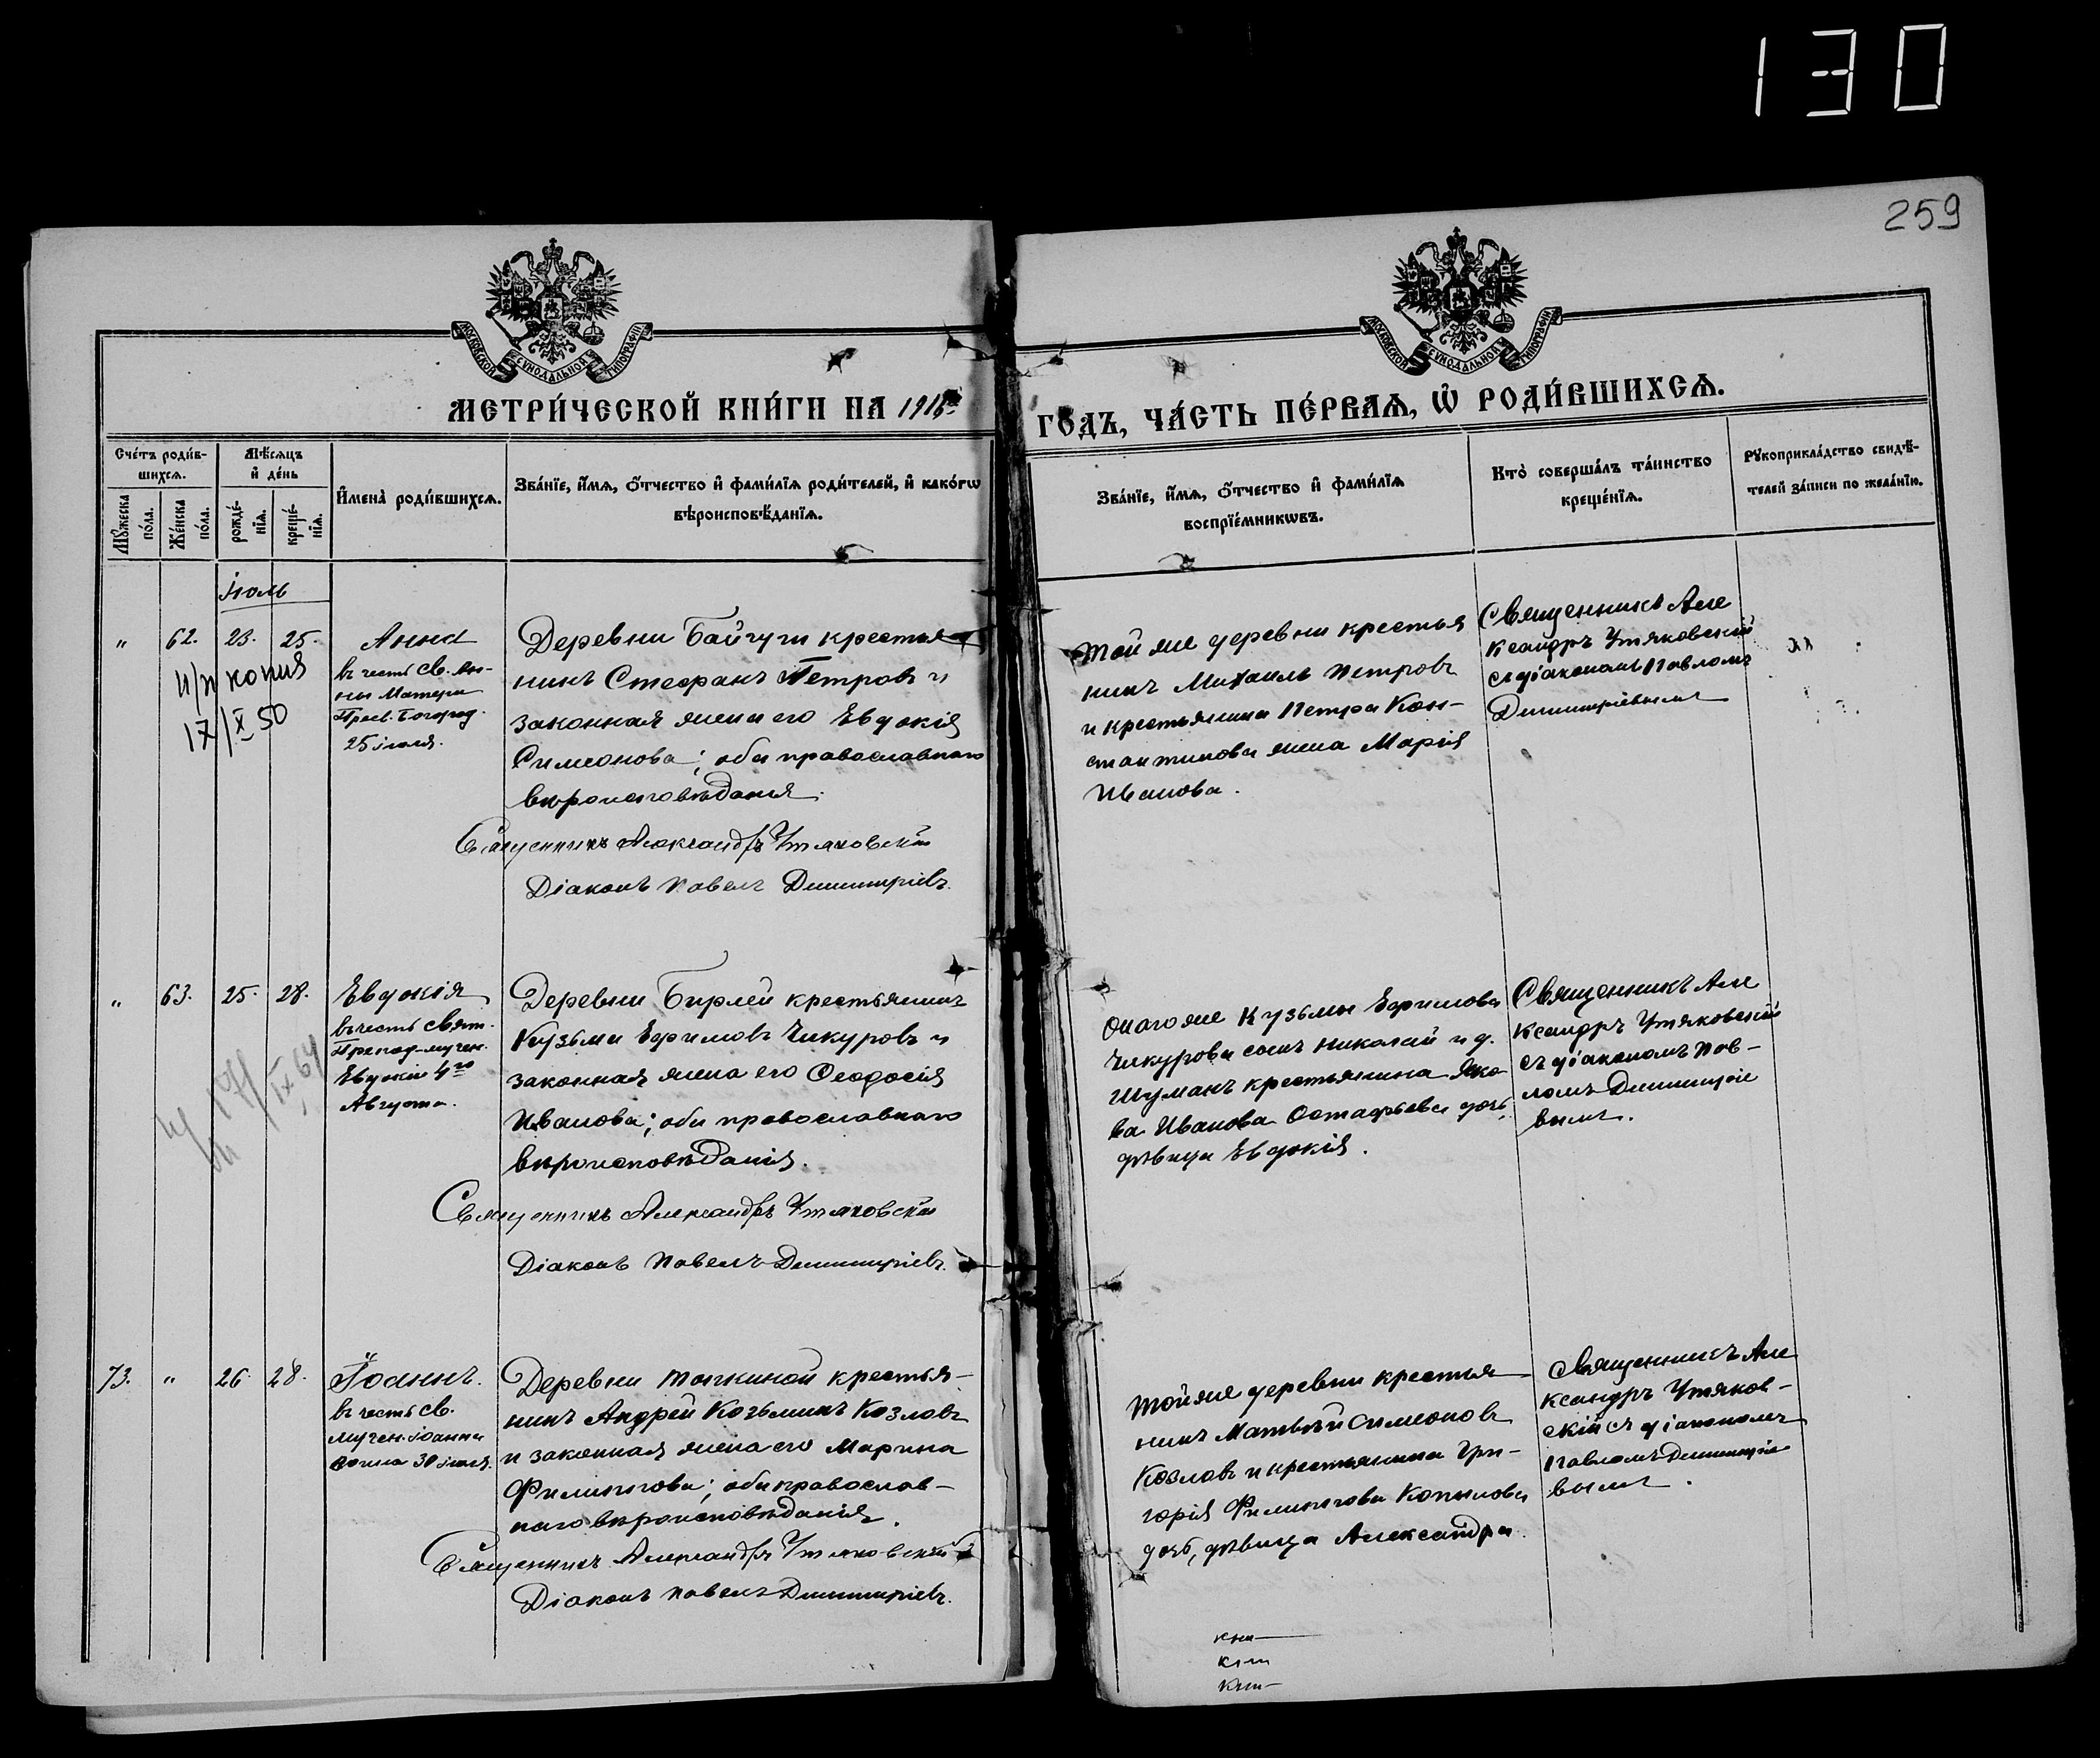 130
259
МОСКОВСКОЙ СѴНОДАЛЬНОЙ ТИПОГРАФІИ
МОСКОВСКОЙ СѴНОДАЛЬНОЙ ТИПОГРАФІИ
МЕТРИ́ЧЕСКОЙ КНИ́ГИ НА
ГО́ДЪ, ЧА́СТЬ ПЕ́РВАѦ, Ѡ҆ РОДИ́ВШИХСѦ.
Сче́тъ роди́в-
шихсѧ.
Мѣ́сѧцъ
и҆ де́нь
Мꙋ́жеска
по́ла.
Же́нска
по́ла.
рожде́-
нїѧ.
креще́-
нїѧ.
И҆мена̀ роди́вшихсѧ.
Зва́нїе, и҆́мѧ, ѻ҆́тчество и҆ фами́лїѧ роди́телей, и҆ како́гѡ
вѣроисповѣ́данїѧ.
Зва́нїе, и҆́мѧ, ѻ҆́тчество и҆ фами́лїѧ
воспрїе́мникѡвъ.
Кто̀ соверша́лъ та́инство
креще́нїѧ.
Рꙋкоприкла́дство свидѣ́-
телей за́писи по жела́нїю.
Іюль
" 62. 23. 25.
копия
17/X 50
Анна
въ честь св. Ан-
ны Матери
Прес. Богород.
25 іюля.
Деревни Байгузи крестья
нинъ Стефанъ Петровъ и
законная жена его Евдокія
Симеонова; оба православнаго
вѣроисповѣданія.
Священникъ Александръ Утяковскій
Діаконъ Павелъ Димитріевъ.
Той же деревни крестья
нинъ Михаилъ Петровъ
и крестьянина Петра Кон-
стантинова жена Марія
Иванова.
Священникъ Але
ксандръ Утяковскій
съ діакономъ Павломъ
Димитріевымъ
" 63. 25. 28.
IX 64
Евдокія
въ честь свят.
Препод-мучен.
Евдокіи 4го
Августа.
Деревни Бирлей крестьянинъ
Кузьма Ефимовъ Чикуровъ и
законная жена его Ѳеодосія
Иванова; оба православнаго
вѣроисповѣданія.
Священникъ Александръ Утяковскій
Діаконъ Павелъ Димитріевъ.
Онаго же Кузьмы Ефимова
Чикурова сынъ Николай и д.
крестьянина Яко
ва Иванова Остафьева дочь,
дѣвица Евдокія.
Священникъ Але
ксандръ Утяковскій
съ діакономъ Пав-
ломъ Димитріе
вымъ.
73. " 26. 28.
Іоаннъ.
въ честь св.
мучен. Іоанна
воина 30 іюля.
Деревни крестья-
нинъ Андрей Козьминъ Козловъ
и законная жена его Марина
Филиппова; оба православ-
наго вѣроисповѣданія.
Священникъ Александръ Утяковскій
Діаконъ Павелъ Димитріевъ.
Той же деревни крестья
нинъ Матвѣй Симеоновъ
Козловъ и крестьянина Гри-
горія Филиппова Копылова
дочь, дѣвица Александра.
Священникъ Але
ксандръ Утяков-
скій съ діакономъ
Павломъ Димитріе
вымъ.